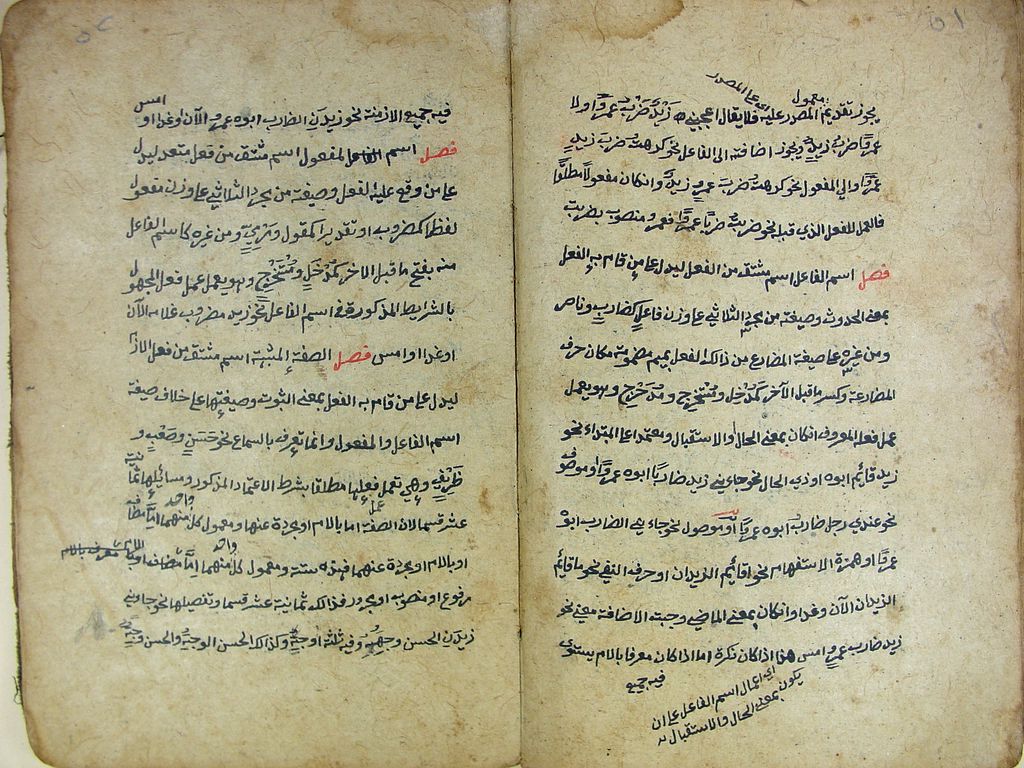 ٥١
معمول
اى على المصدر
يجوز تقديم المصدر عليه فلا يقال اعجبنى زيد ضرب عمرًوا ولا
عمرًوا ضرب زيد ويجوز اضافته الى الفاعل نحو كرهت ضرب زيد
عمرًوا والى المفعول نحو كرهت ضرب عمرو زيد وان كان مفعولا مطلقًا
فالعمل للفعل الذى قبله نحو ضربت ضربًا عمرًوا فعمرو منصوب بضربت
فصل اسم الفاعل اسم مشتق من الفعل ليدل على من قام به الفعل
بمعنى الحدوث وصيغته من مجرد الثلاثى على وزن فاعل كضارب وناصر
ومن غيره على صيغة المضارع من ذلك الفعل بميم مضمومة مكان حرف
المضارعة وكسر ما قبل الآخر كمدخل ومستخرج ومدحرج وهو يعمل
عمل فعله المعروف ان كان بمعنى الحال والاستقبال ومعتمدا على المبتداء نحو
زيد قائم ابوه او ذى الحال نحو جاءنى زيد ضاربا ابوه عمرًوا او موصوف
نحو عندى رجل ضارب ابوه عمرًوا او موصول نحو جاءنى الضارب ابوه
عمرًوا او همزة الاستفهام نحو اقائم الزيدان او حرف النفى نحو ما قائم
الزيدان الآن وغدا وان كان بمعنى الماضى وجبت الاضافة معنى نحو
زيد ضارب عمرو امس هذا اذا كان نكرة اما اذا كان معرفا بالام يستوى
فيه جميع
اى اعمال اسم الفاعل على ان
يكون بمعنى الحال والاستقبال
٥٢
فيه جميع الازمنة نحو زيدن الضارب ابوه عمرو الآن وغدا او امس
فصل اسم المفعول اسم مشتق من فعل متعد ليدل
على من وقع عليه الفعل وصيغته من مجرد الثلاثى على وزن مفعول
لفظا كمضروب او تقديرا كمقول ومرمى ومن غيره كاسم الفاعل
منه بفتح ما قبل الاخر كمدخل ومستخرج وهو يعمل عمل فعل المجهول
بالشرايط المذكورة فى اسم الفاعل نحو زيد مضروب غلامه الآن
او غدا او امس فصل الصفة المشبهة اسم مشتق من فعل لازم
ليدل على من قام به الفعل بمعنى الثبوت وصيغتها على خلاف صيغة
اسم الفاعل والمفعول وانما تعرف بالسماع نحو حسن وصعب و
ظريف وهى تعمل عمل فعلها مطلقا بشرط الاعتماد المذكور ومسائلها ثمانية
عشر قسما لان الصفة اما بالام او مجردة عنها ومعمول كل واحد منهما اما مضاف
او بالام او مجردة عنهما فهذه ستة ومعمول كل واحد منهما اما
مرفوع او منصوب او مجرور فذلك ثمانية عشر قسما وتفصيلها نحو جاءنى
زيدن الحسن وجهه وفيه ثلثة اوجه وكذلك الحسن الوجه والحسن وجه